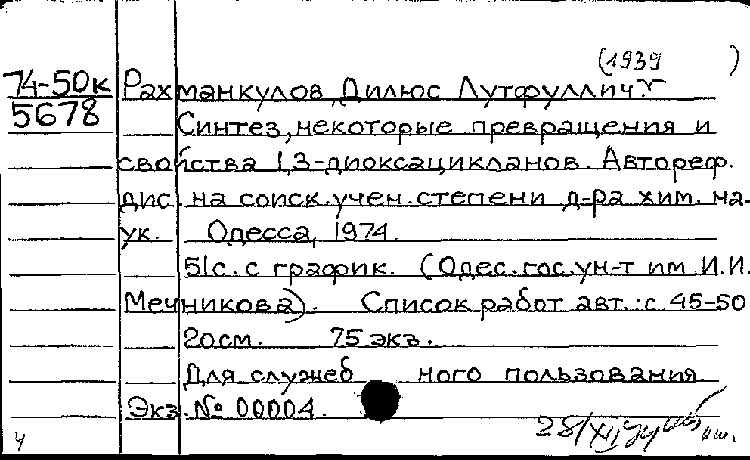 (1939 )
74-50к Рахманкулов, Дилюс Лутфуллич
5678 Синтез, некоторые превращения и
свойства 1,3-диоксацикланов. Автореф.
дис. на соиск. учен. степени д-ра хим. на-
ук. Одесса, 1974.
51с. с график. (Одес. гос. ун-т им И.И.
Мечникова). Список работ авт.: с 45-50
20см. 75 экз.
Для служебного пользования
Экз. № 00004.
28/XI
4